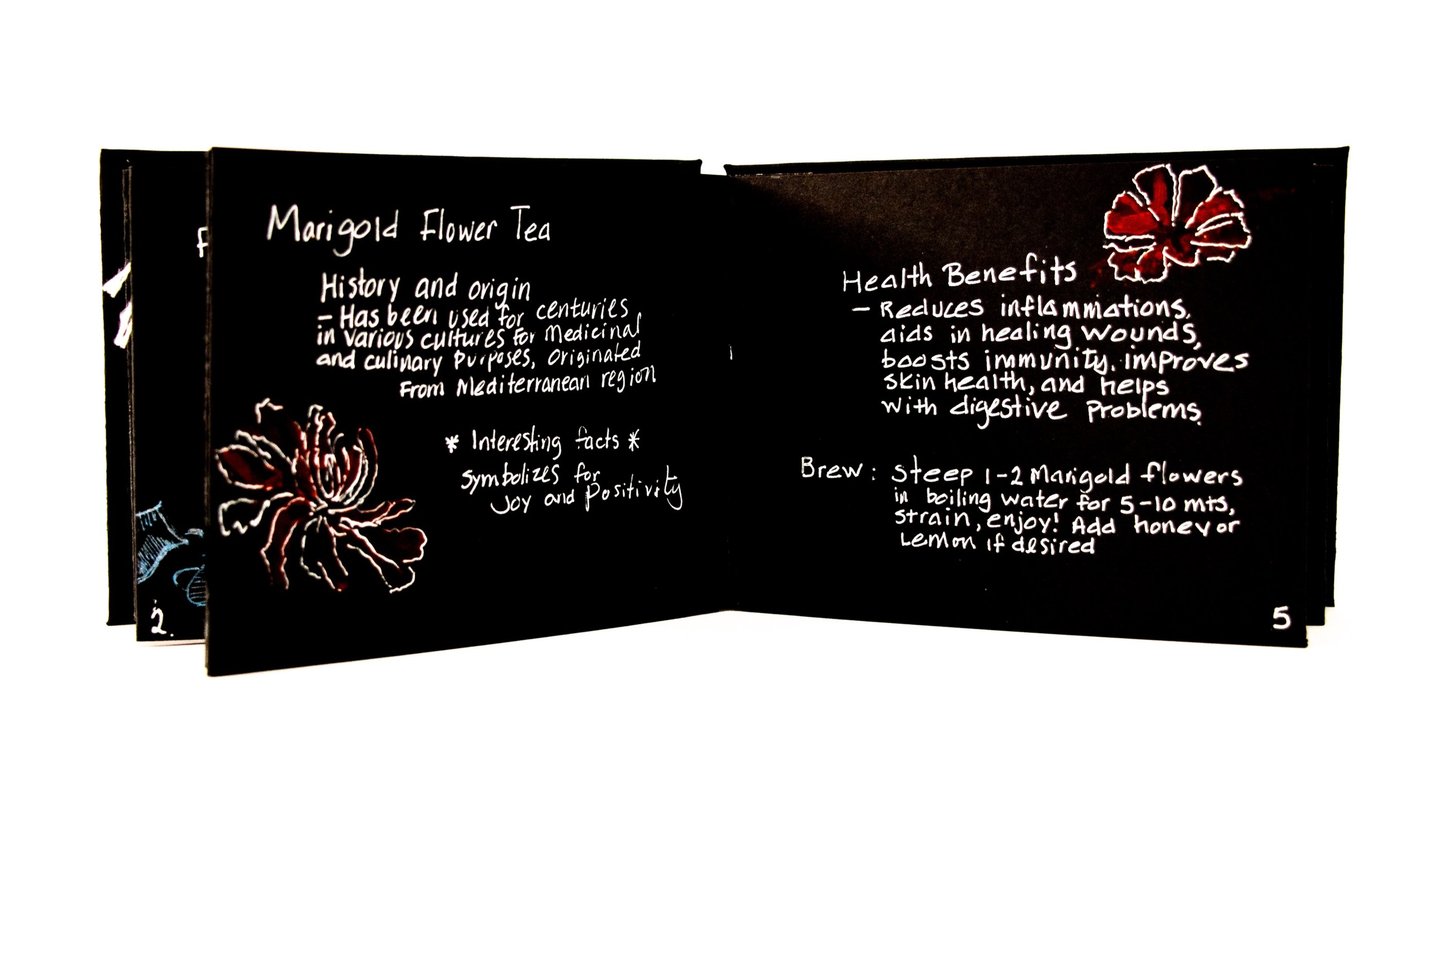 Marigold Flower Tea
History and origin
- Has been used for centuries
in various cultures for Medicinal
and culinary purposes, originated
From Mediterranean region
* Interesting facts *
Symbolizes for
Joy and positivity
2.
Health Benefits
- Reduces inflammations,
aids in healing wounds,
boosts immunity, improves
skin health, and helps
with digestive problems.
Brew: Steep 1-2 Marigold flowers
in boiling water for 5-10 mts,
strain, enjoy! Add honey or
Lemon if desired
5